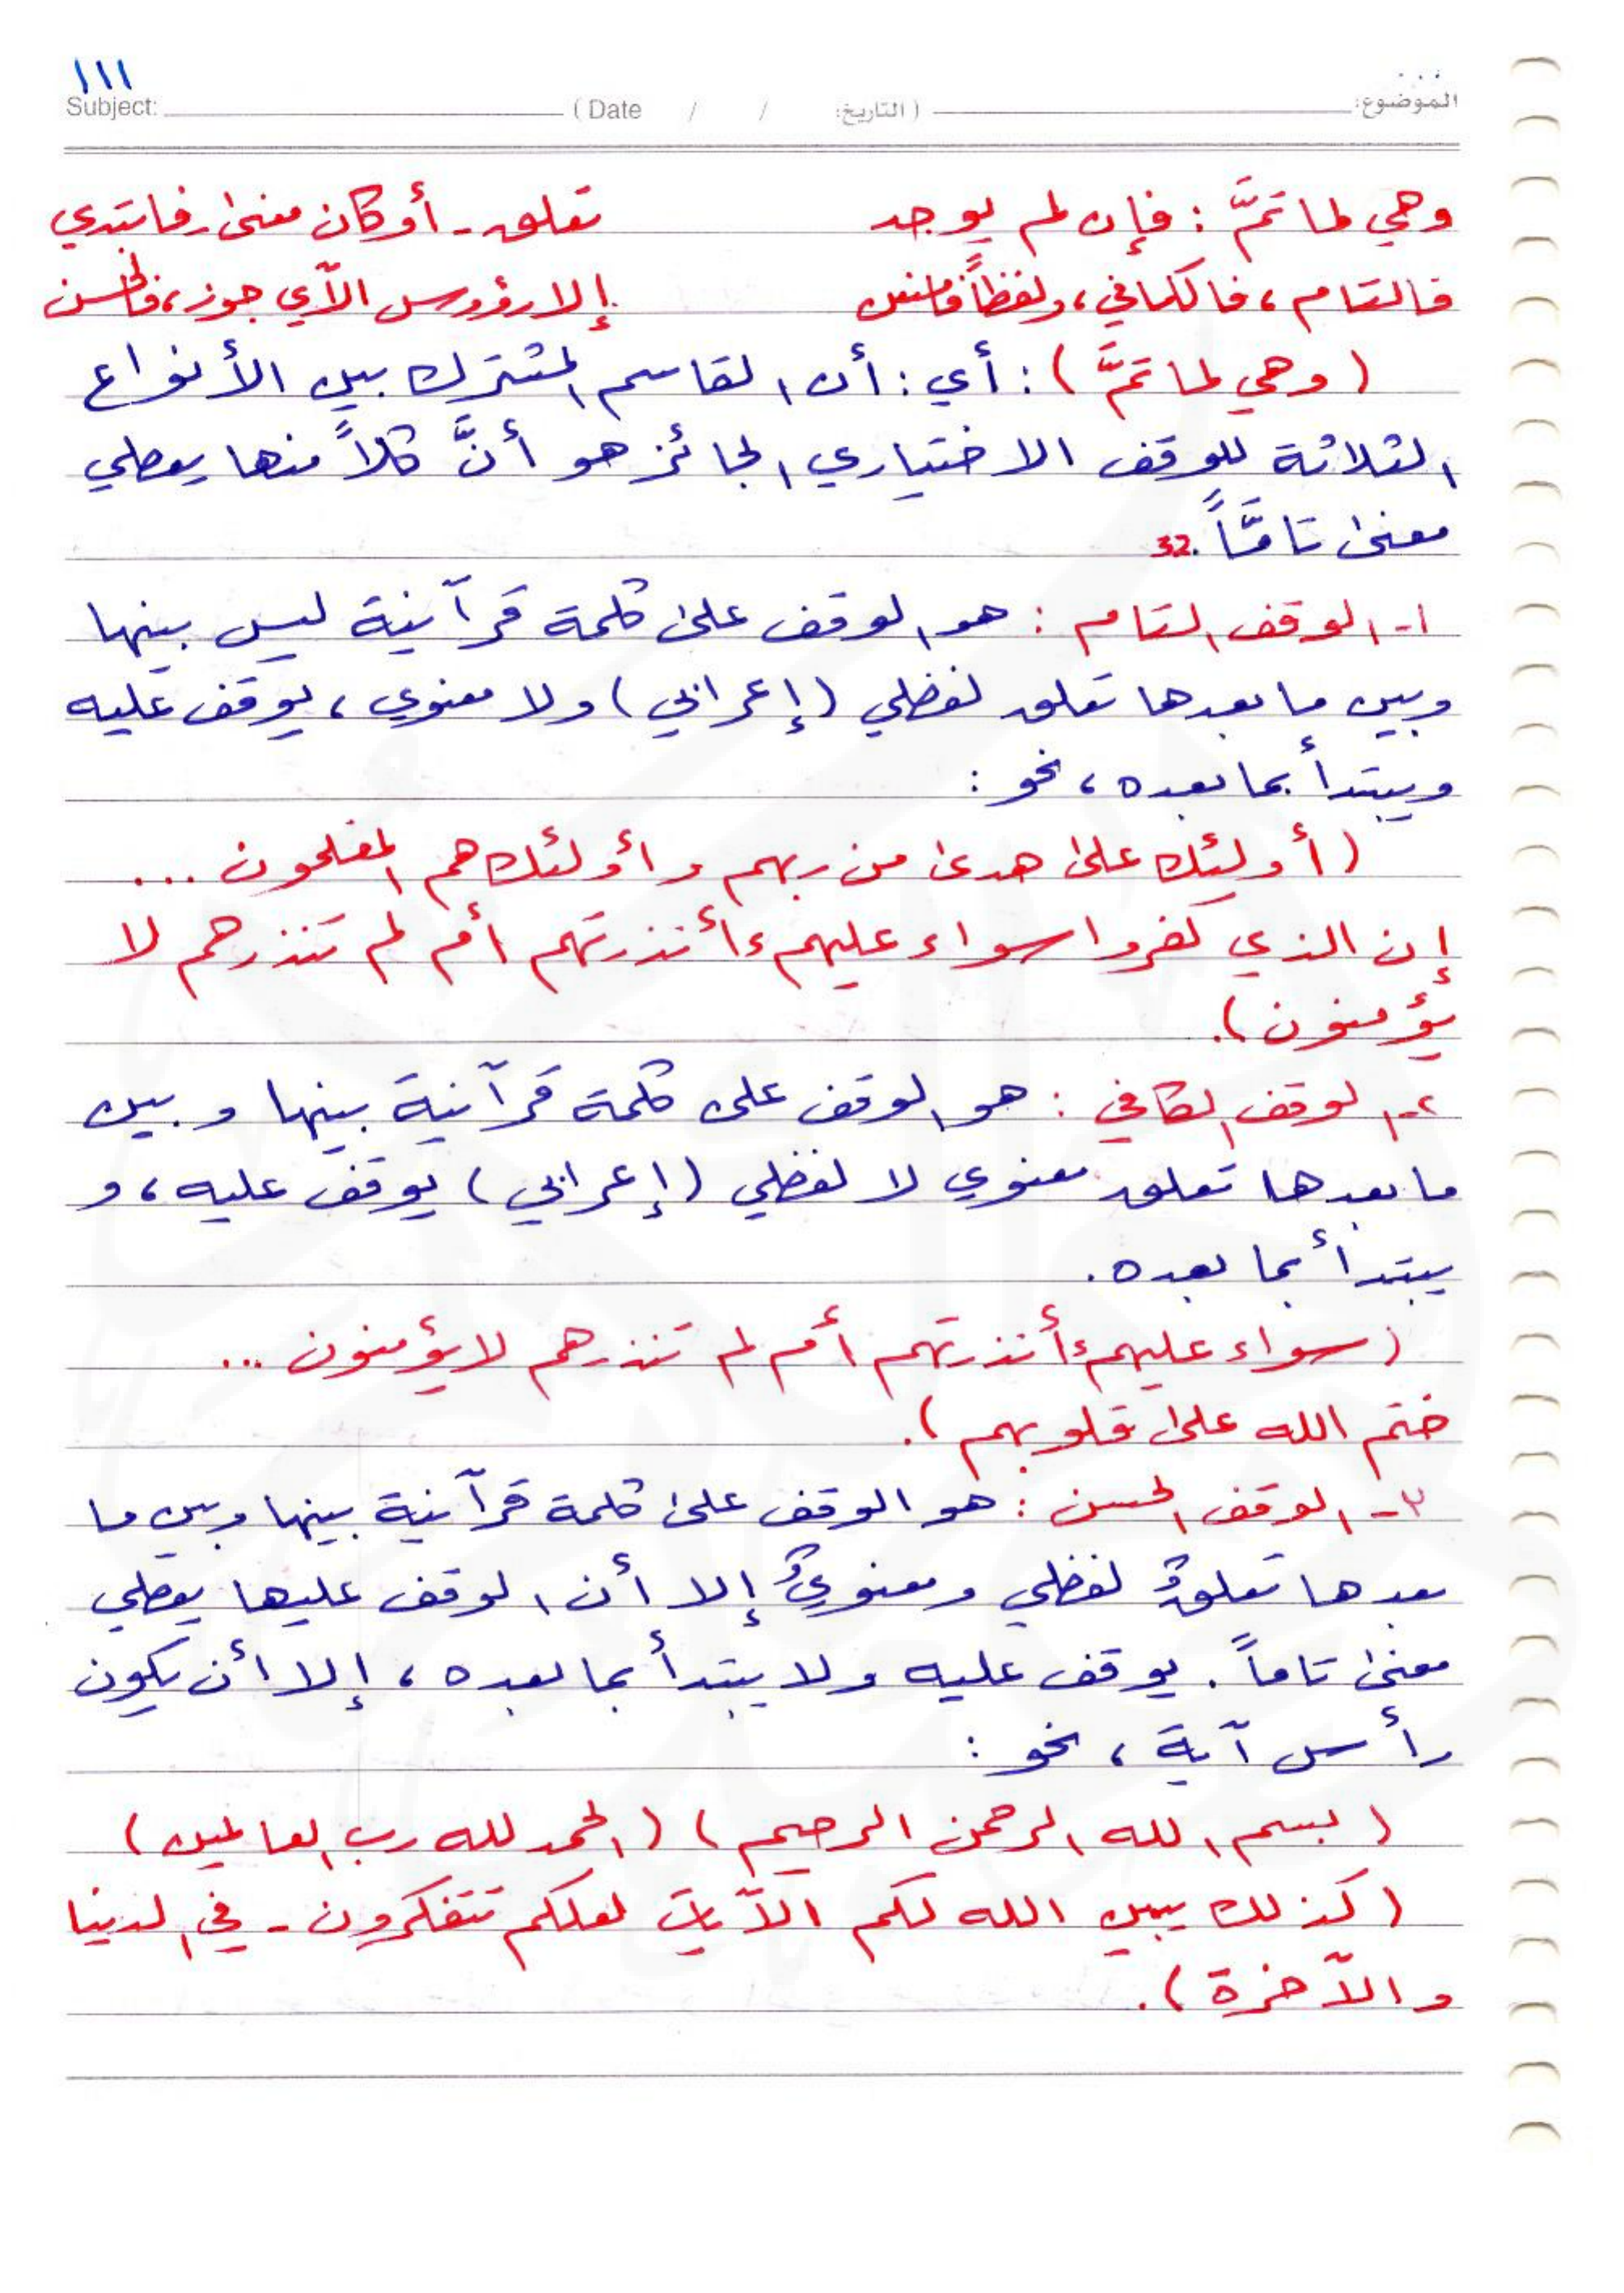 ١١١
Subject: ( Date / / التاريخ: ) الموضوع:
وهي لما تمَّ : فإن لم يوجد تعلق - أو كان معنىً فابتدي
فالتام ، فالكافي ، ولفظاً فامنعن إلا رؤوس الآي جوز ، فالحسن
( وهي لما تمَّ ) : أي : أن القاسم المشترك بين الأنواع
الثلاثة للوقف الاختياري الجائز هو أنَّ كلاً منها يعطي
معنىً تامَّاً . 32
١- الوقف التام : هو الوقف على كلمة قرآنية ليس بينها
وبين ما بعدها تعلق لفظي ( إعرابي ) ولا معنوي ، يوقف عليه
ويبتدأ بما بعده ، نحو :
( أولئك على هدى من ربهم وأولئك هم المفلحون ...
إن الذي كفروا سواء عليهم ءأنذرتهم أم لم تنذرهم لا
يؤمنون ) .
٢- الوقف الكافي : هو الوقف على كلمة قرآنية بينها وبين
ما بعدها تعلق معنوي لا لفظي ( إعرابي ) يوقف عليه ، و
يبتدأ بما بعده .
( سواء عليهم ءأنذرتهم أم لم تنذرهم لا يؤمنون ...
ختم الله على قلوبهم ) .
٣- الوقف الحسن : هو الوقف على كلمة قرآنية بينها وبين ما
بعدها تعلقٌ لفظي ومعنويٌ إلا أن الوقف عليها يعطي
معنىً تاماً . يوقف عليه ولا يبتدأ بما بعده ، إلا أن يكون
رأس آية ، نحو :
( بسم الله الرحمن الرحيم ) ( الحمد لله رب العالمين )
( كذلك يبين الله لكم الآيات لعلكم تتفكرون - في الدنيا
والآخرة ) .